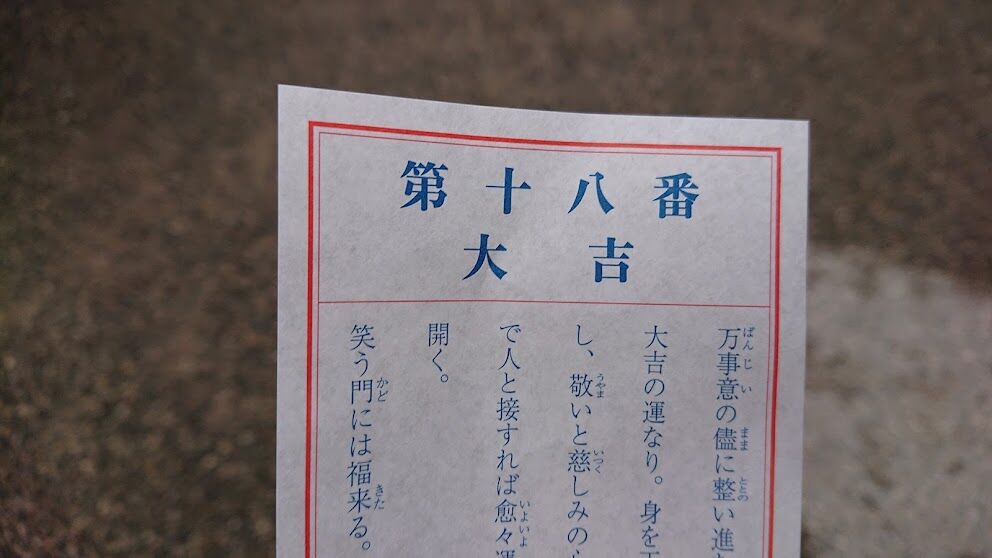 第十八番
大吉
万事意の儘に整い進
大吉の運なり。身を
し、敬いと慈しみの
で人と接すれば愈々
開く。
笑う門には福来る。